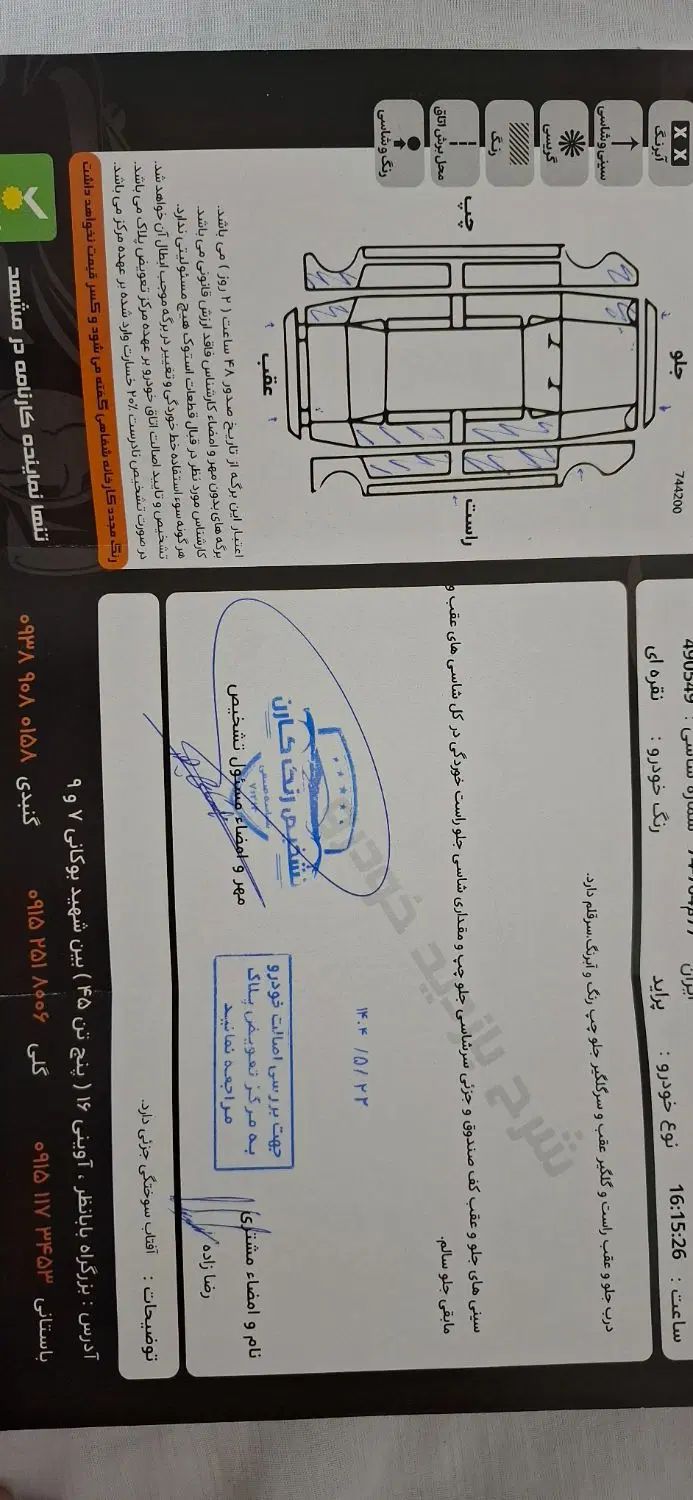 ساعت : 16:15:26
نوع خودرو : پراید
ایران
رنگ خودرو : نقره ای
490549
744200
جلو
چپ
راست
عقب
X X
آبرنگ
سینی و شاسی
گریسی
رنگ
محل برش اتاق
رنگ و شاسی
درب جلو و عقب راست و گلگیر عقب و سرگلگیر جلو چپ رنگ و آبرنگ.سرقلم دارد.
سینی های جلو و عقب کف صندوق و جزئی سرشاسی جلو چپ و مقداری شاسی جلو راست خوردگی در کل شاسی های عقب و
مابقی جلو سالم.
شرح بازدید خودرو
۱۴۰۴/۵/۲۲
تشخیص رنگ کارن
جهت بررسی اصالت خودرو
به مرکز تعویض پلاک
مراجعه نمائید
مهر و امضاء مسئول تشخیص
نام و امضاء مشتری
رضا زاده
توضیحات : آفتاب سوختگی جزئی دارد.
اعتبار این برگه از تاریخ صدور ۴۸ ساعت ( ۲ روز ) می باشد.
برگه های بدون مهر و امضاء کارشناس فاقد ارزش قانونی می باشد.
کارشناس مورد نظر در قبال قطعات استوک هیچ مسئولیتی ندارد.
هر گونه سوء استفاده خط خوردگی و تغییر در برگه موجب ابطال آن خواهد شد.
تشخیص و تایید اصالت اتاق خودرو بر عهده مرکز تعویض پلاک می باشد.
در صورت تشخیص نادرست ۲۰٪ خسارت وارد شده بر عهده مرکز می باشد.
رنگ مجدد کارخانه شفاهی گفته می شود و کسر قیمت نخواهد داشت
آدرس : بزرگراه بابانظر ، آوینی ۱۶ ( پنج تن ۴۵ ) بین شهید بوکانی ۷ و ۹
تنها نماینده کارنامه در مشهد
باستانی ۰۹۱۵ ۱۱۷ ۳۴۵۳
گلی ۰۹۱۵ ۲۵۱ ۸۰۰۶
گنبدی ۰۹۳۸ ۹۰۸ ۰۱۵۸